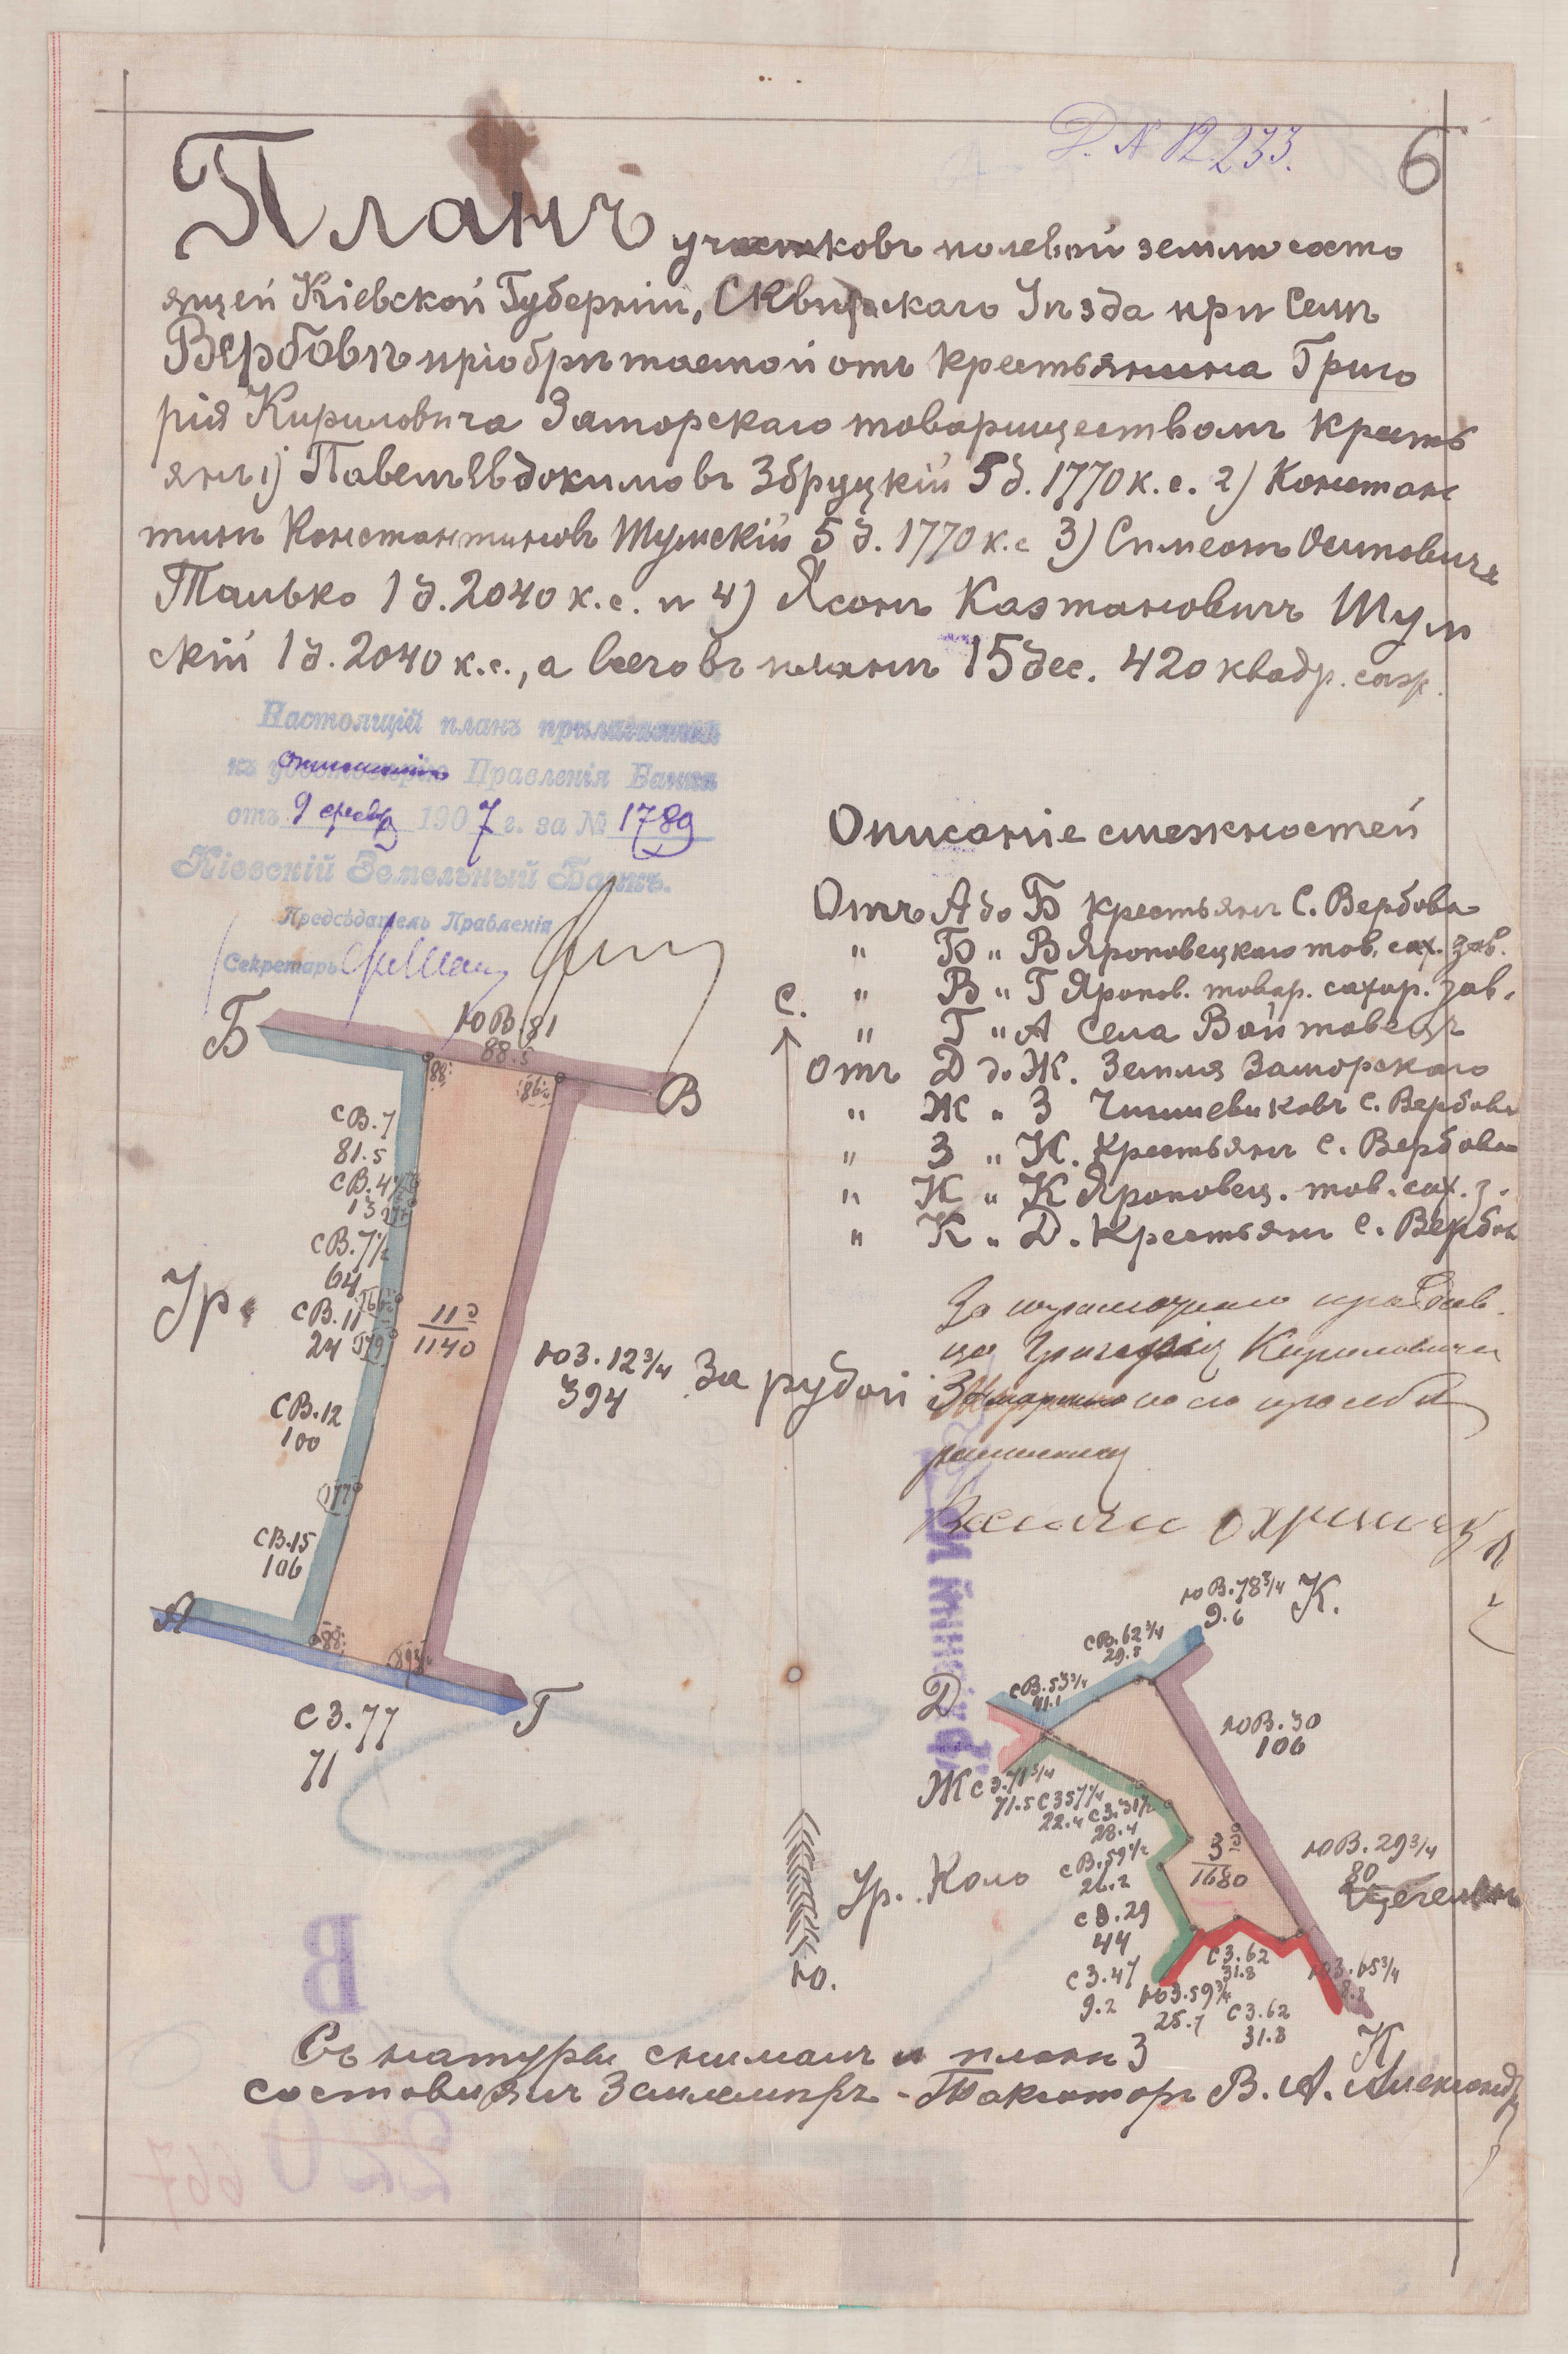 Д. N 12.233.
6
Планъ участковъ полевой земли состо
ящей Кіевской Губерніи, Сквирскаго Уѣзда при Селѣ
Вербовѣ пріобрѣтаемой отъ крестьянина Григо
рія Кириловича Заторскаго товариществомъ кресть
янъ 1) Павелъ Евдокимовъ Збруцкій 5 д. 1770 к. с. 2) Констан
тинъ Константиновъ Шумскій 5 д. 1770 к. с 3) Симеонъ Осиповичъ
Талько 1 д. 2040 к. с. и 4) Ясонъ Каэтановичъ Шум
скій 1 д. 2040 к. с., а всего въ планѣ 15 дес. 420 квадр. саж.
Настоящій планъ прилагается
къ отношенію Правленія Банка
отъ 9 февр 1907 г. за № 1789
Кіевскій Земельный Банкъ.
Предсѣдатель Правленія
Секретарь
Описаніе смежностей
Отъ А до Б крестьянъ С. Вербова
" Б " В Яроповецкаго тов. сах. зав.
" В " Г Яропов. товар. сахар. зав.
" Г " А Села Войтовецъ
отъ Д до Ж. Земля Заторскаго
" Ж " З Чиншевиковъ С. Вербова
" З " И. Крестьянъ С. Вербова
" И " К Яроповец. тов. сах. з.
" К " Д. Крестьянъ С. Вербов
С.
Б
ЮВ.81
88.5
В
88
86½
СВ.7
81.5
СВ.47
13
СВ.7½
64
СВ.11
24
179
Ур.
11д
1140
ЮЗ.12¾
394
За рубой
СВ.12
100
177
СВ.15
106
А
88
89¾
Г
СЗ.77
71
За неграмотнаго продав
ца Григорія Кириловича
Заторскаго по его просьбѣ
К.
ЮВ.78¾
9.6
СВ.62¾
29.8
СВ.53¾
41.1
Д
ЮВ.30
106
Ж
СЗ.71¾
71.5
СЗ57¼
22.4
СЗ.31½
28.4
СВ.59½
26.2
3д
1680
ЮВ.29¾
80
Ур. Коло
СВ.29
44
СЗ.47
9.2
ЮЗ.59¾
25.7
СЗ.62
31.8
СЗ.62
31.8
ЮЗ.65¾
8.8
Ю.
З
И
В
Съ натуры снималъ и планъ
составлялъ Землемѣръ-Таксаторъ В. А. Александр
220
667